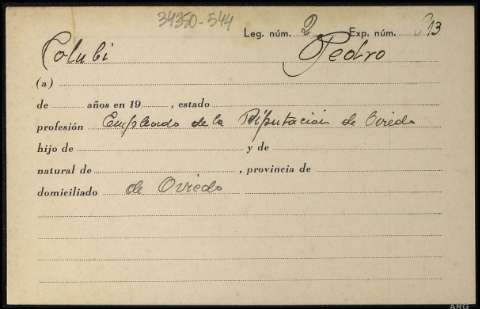 34350-544
Leg. núm. 2 Exp. núm. 13
Colubi Pedro
(a)
de años en 19 , estado
profesión Empleado de la Diputación de Oviedo
hijo de y de
natural de , provincia de
domiciliado de Oviedo